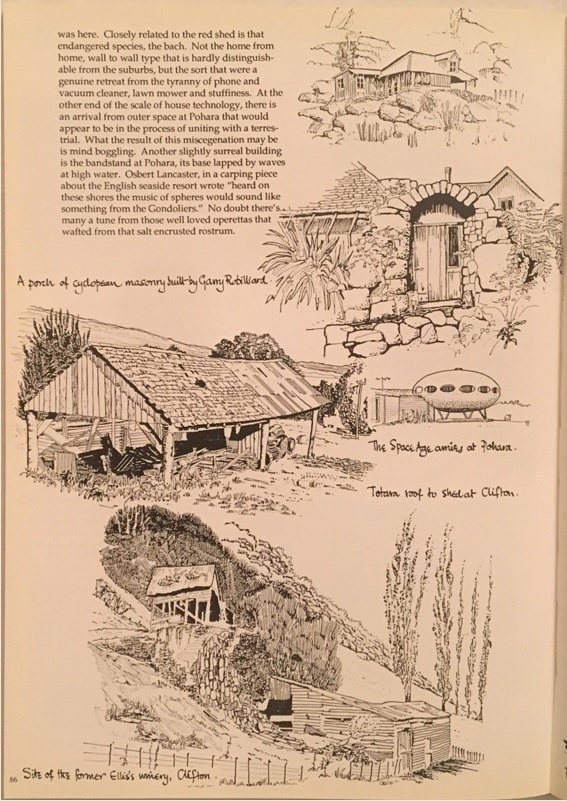 was here. Closely related to the red shed is that
endangered species, the bach. Not the home from
home, wall to wall type that is hardly distinguish-
able from the suburbs, but the sort that were a
genuine retreat from the tyranny of phone and
vacuum cleaner, lawn mower and stuffiness. At the
other end of the scale of house technology, there is
an arrival from outer space at Pohara that would
appear to be in the process of uniting with a terres-
trial. What the result of this miscegenation may be
is mind boggling. Another slightly surreal building
is the bandstand at Pohara, its base lapped by waves
at high water. Osbert Lancaster, in a carping piece
about the English seaside resort wrote "heard on
these shores the music of spheres would sound like
something from the Gondoliers." No doubt there's
many a tune from those well loved operettas that
wafted from that salt encrusted rostrum.
A porch of cyclopean masonry built by Garry Robilliard.
The Space Age arrives at Pohara.
Totara roof to shed at Clifton.
86 Site of the former Ellis's winery, Clifton.